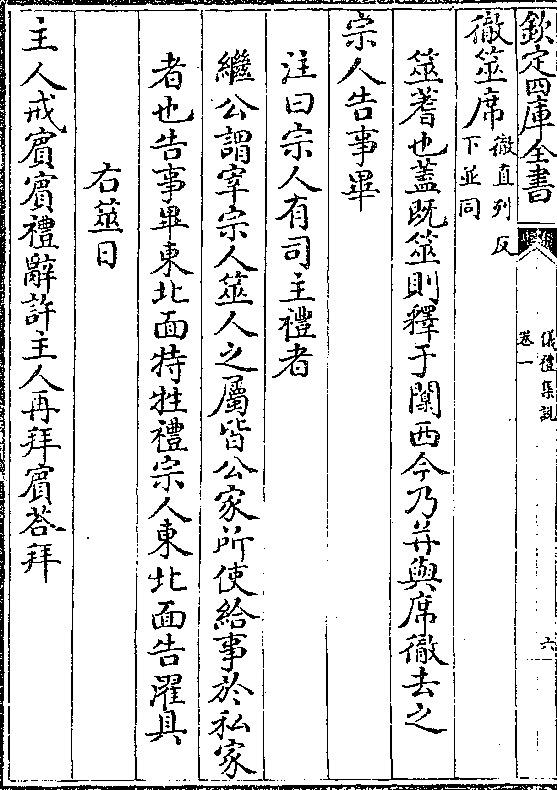 欽定四庫全書
儀禮集說
卷一
六
徹筮席徹直列反下並同
筮蓍也蓋既筮則釋于闑西今乃并與席徹去之
宗人告事畢
注曰宗人有司主禮者
繼公謂宰宗人筮人之屬皆公家所使給事於私家
者也告事畢東北面特牲禮宗人東北面告濯具
右筮日
主人戒賓賓禮辭許主人再拜賓荅拜